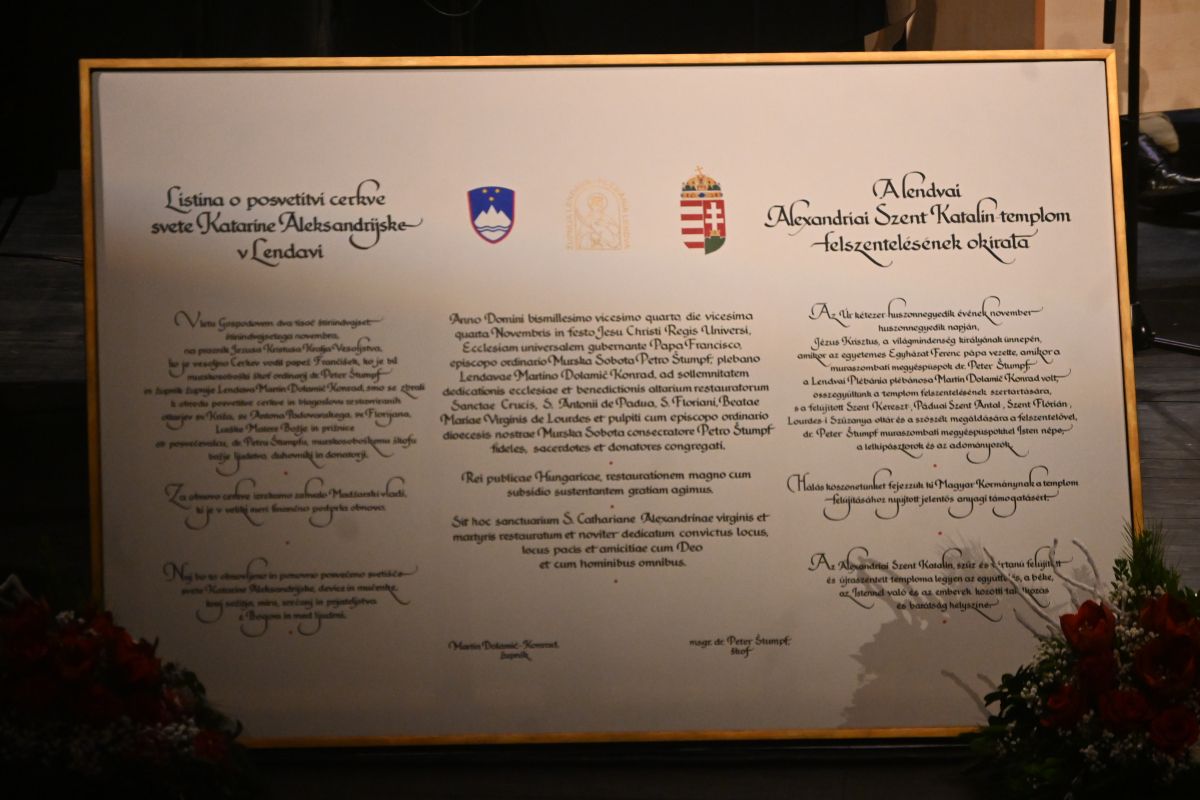 Listina o posvetitvi cerkve
svete Katarine Aleksandrijske
v Lendavi
A lendvai
Alexandriai Szent Katalin-templom
felszentelésének okirata
V letu Gospodovem dva tisoč štiriindvajset
štiriindvajsetega novembra,
na praznik Jezusa Kristusa Kralja Vesoljstva,
ko je vesoljno Cerkev vodil papež Frančišek, ko je bil
murskosoboški škof ordinarij dr. Peter Štumpf
in župnik župnije Lendava Martin Dolamič Konrad, smo se zbrali
k obredu posvetitve cerkve in blagoslovu restavriranih
oltarjev sv. Križa, sv. Antona Padovanskega, sv. Florijana,
Lurške Matere Božje in prižnice
ob posvečevalcu, dr. Petru Štumpfu, murskosoboškemu škofu
božje ljudstvo, duhovniki in donatorji.
Za obnovo cerkve izrekamo zahvalo Madžarski vladi,
ki je v veliki meri finančno podprla obnovo.
Naj bo to obnovljeno in ponovno posvečeno svetišče
svete Katarine Aleksandrijske, device in mučenke,
kraj sožitja, miru, srečanj in prijateljstva
z Bogom in med ljudmi.
Anno Domini bismillesimo vicesimo quarto, die vicesima
quarta Novembris in festo Jesu Christi Regis Universi,
Ecclesiam universalem gubernante Papa Francisco,
episcopo ordinario Murska Sobota Petro Štumpf, plebano
Lendavae Martino Dolamič Konrad, ad sollemnitatem
dedicationis ecclesiae et benedictionis altarium restauratorum
Sanctae Crucis, S. Antonii de Padua, S. Floriani, Beatae
Mariae Virginis de Lourdes et pulpiti cum episcopo ordinario
dioecesis nostrae Murska Sobota consecratore Petro Štumpf
fideles, sacerdotes et donatores congregati.
Rei publicae Hungaricae, restaurationem magno cum
subsidio sustentantem gratiam agimus.
Sit hoc sanctuarium S. Cathariane Alexandrinae virginis et
martyris restauratum et noviter dedicatum convictus locus,
locus pacis et amicitiae cum Deo
et cum hominibus omnibus.
Martin Dolamič-Konrad,
župnik
msgr. dr. Peter Štumpf,
škof
Az Úr kétezer huszonnegyedik évének november
huszonnegyedik napján,
Jézus Krisztus, a világmindenség királyának ünnepén,
amikor az egyetemes Egyházat Ferenc pápa vezette, amikor a
muraszombati megyéspüspök dr. Peter Štumpf
a Lendvai Plébánia plébánosa Martin Dolamič Konrad volt,
összegyűltunk a templom felszentelésének szertartására,
s a felújított Szent Kereszt, Páduai Szent Antal, Szent Flórián,
Lourdes-i Szűzanya oltár és a szószék megáldására a felszentelővel,
dr. Peter Štumpf muraszombati megyéspüspökkel Isten népe,
a lelkipásztorok és az adományozók.
Hálás köszönetünket fejezzük ki Magyar Kormánynak a templom
felújításához nyújtott jelentős anyagi támogatásért.
Az Alexandriai Szent Katalin, szűz és vértanú felújított
és újraszentelt temploma legyen az együttélés, a béke,
az Istennel való és az emberek közötti találkozás
és barátság helyszíne.